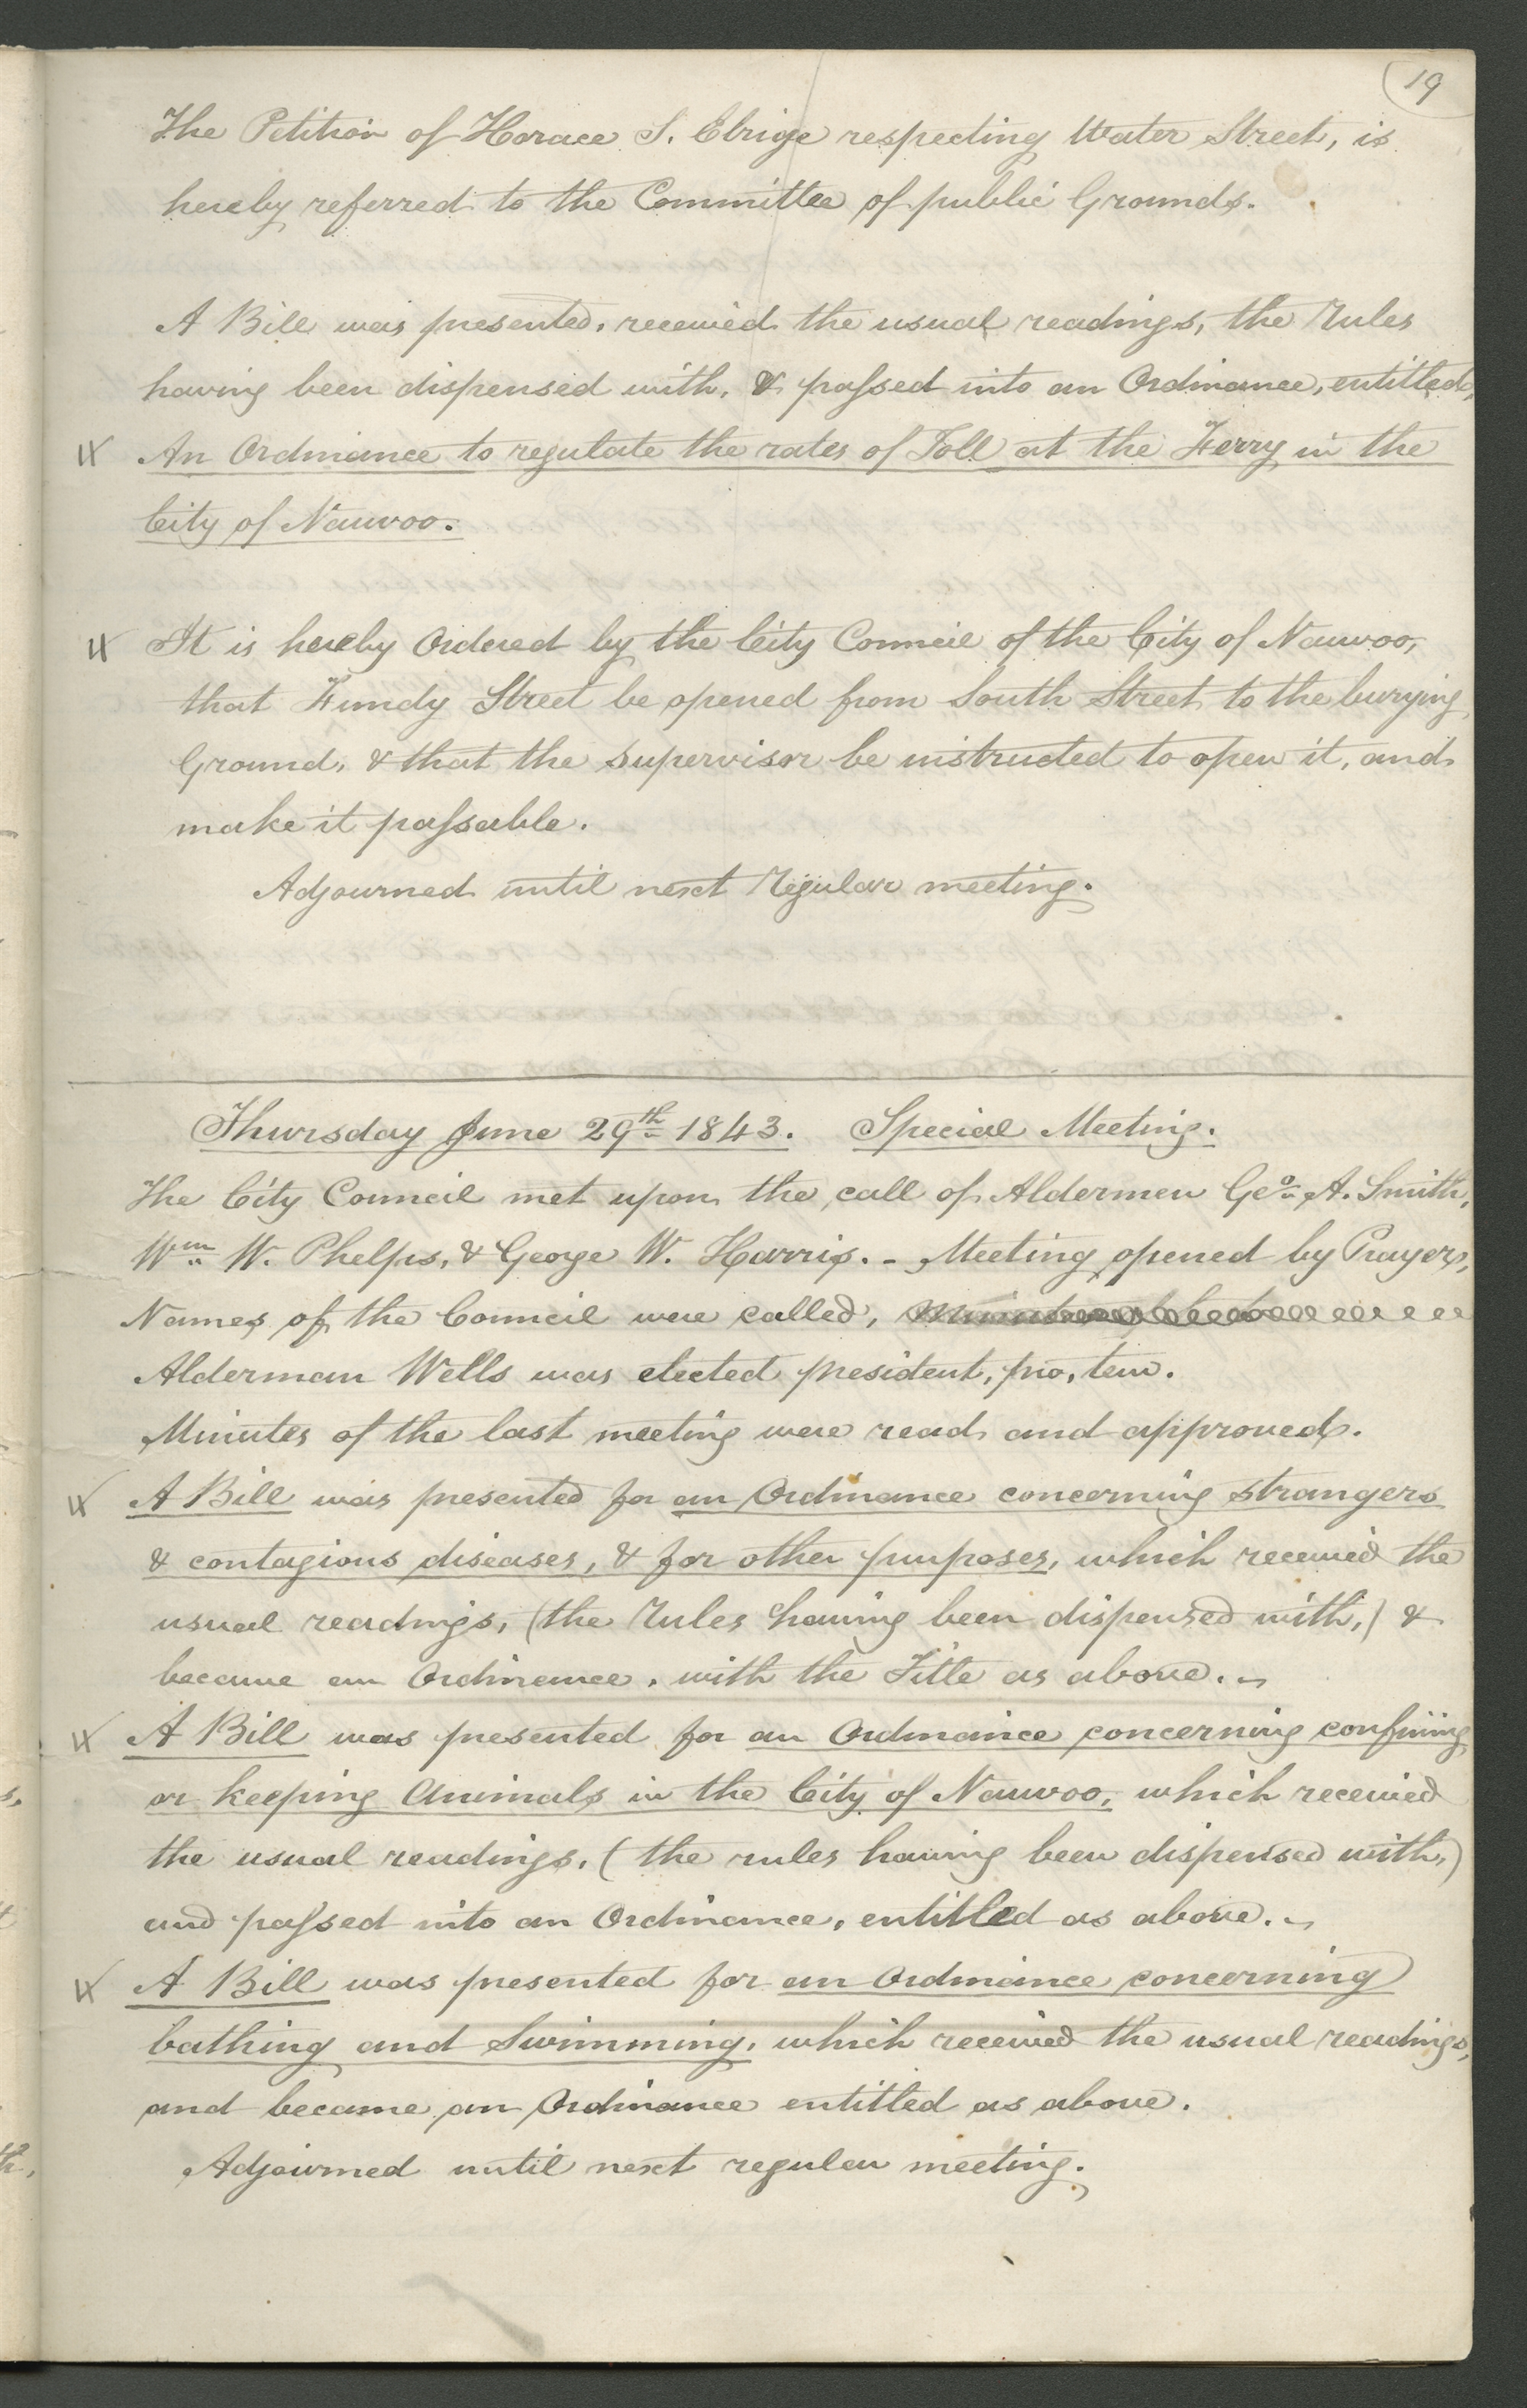 19
The Petition of Horace S. Elrige respecting Water Street, is
hereby referred to the Committee of public Grounds.
A Bill was presented, received the usual readings, the Rules
having been dispensed with, & passed into an Ordinance, entitled,
An Ordinance to regulate the rates of Toll at the Ferry in the
City of Nauvoo.
It is hereby Ordered by the City Council of the City of Nauvoo,
that Fundy Street be opened from South Street to the burying
Ground, & that the supervisor be instructed to open it, and
make it passable.
Adjourned until next Regular meeting.
Thursday June 29th 1843. Special Meeting.
The City Council met upon the call of Aldermen Geo. A. Smith,
Wm. W. Phelps, & George W. Harris. - Meeting opened by Prayer,
Names of the Council were called,
Alderman Wells was elected president, pro, tem.
Minutes of the last meeting were read and approved.
A Bill was presented for an Ordinance concerning strangers
& contagious diseases, & for other purposes, which received the
usual readings, (the Rules having been dispensed with,) &
became an Ordinance, with the Title as above.
A Bill was presented for an Ordinance concerning confining
or keeping Animals in the City of Nauvoo, which received
the usual readings, (the rules having been dispensed with,)
and passed into an Ordinance, entitled as above.
A Bill was presented for an Ordinance concerning
bathing and Swimming, which received the usual readings,
and became an Ordinance entitled as above.
Adjourned until next regular meeting.